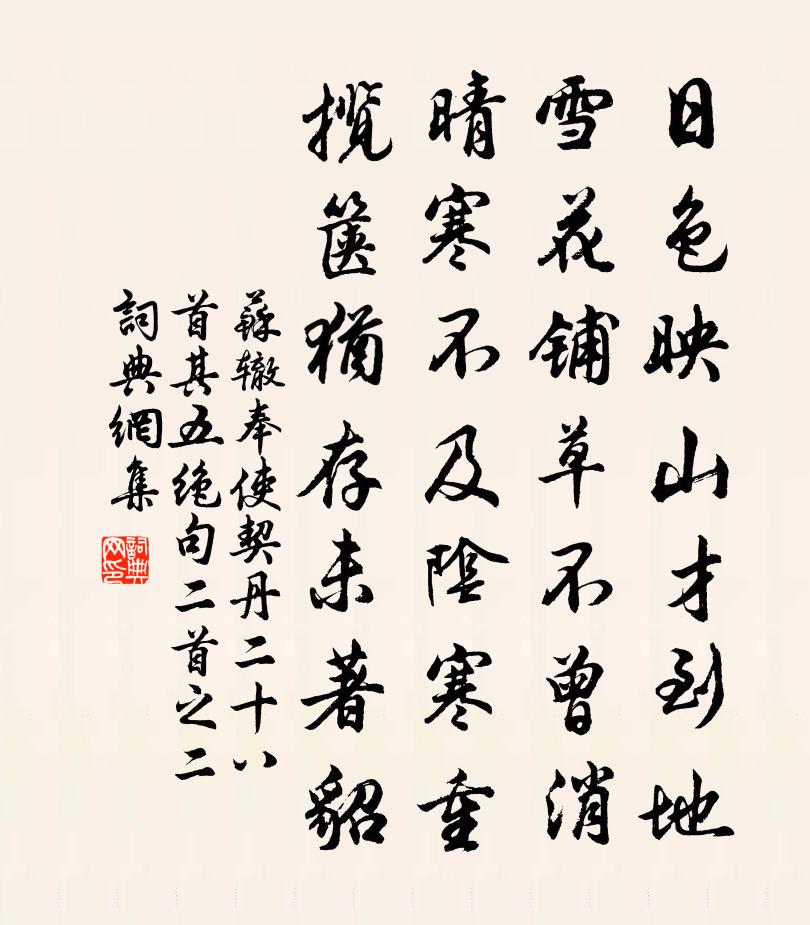 日色映山才到地
雪花铺草不曾消
晴寒不及陰寒重
揽箧猶存未著貂
蘇辙奉使契丹二十八
首其五绝句二首之二
詞典網集
詞典
网印